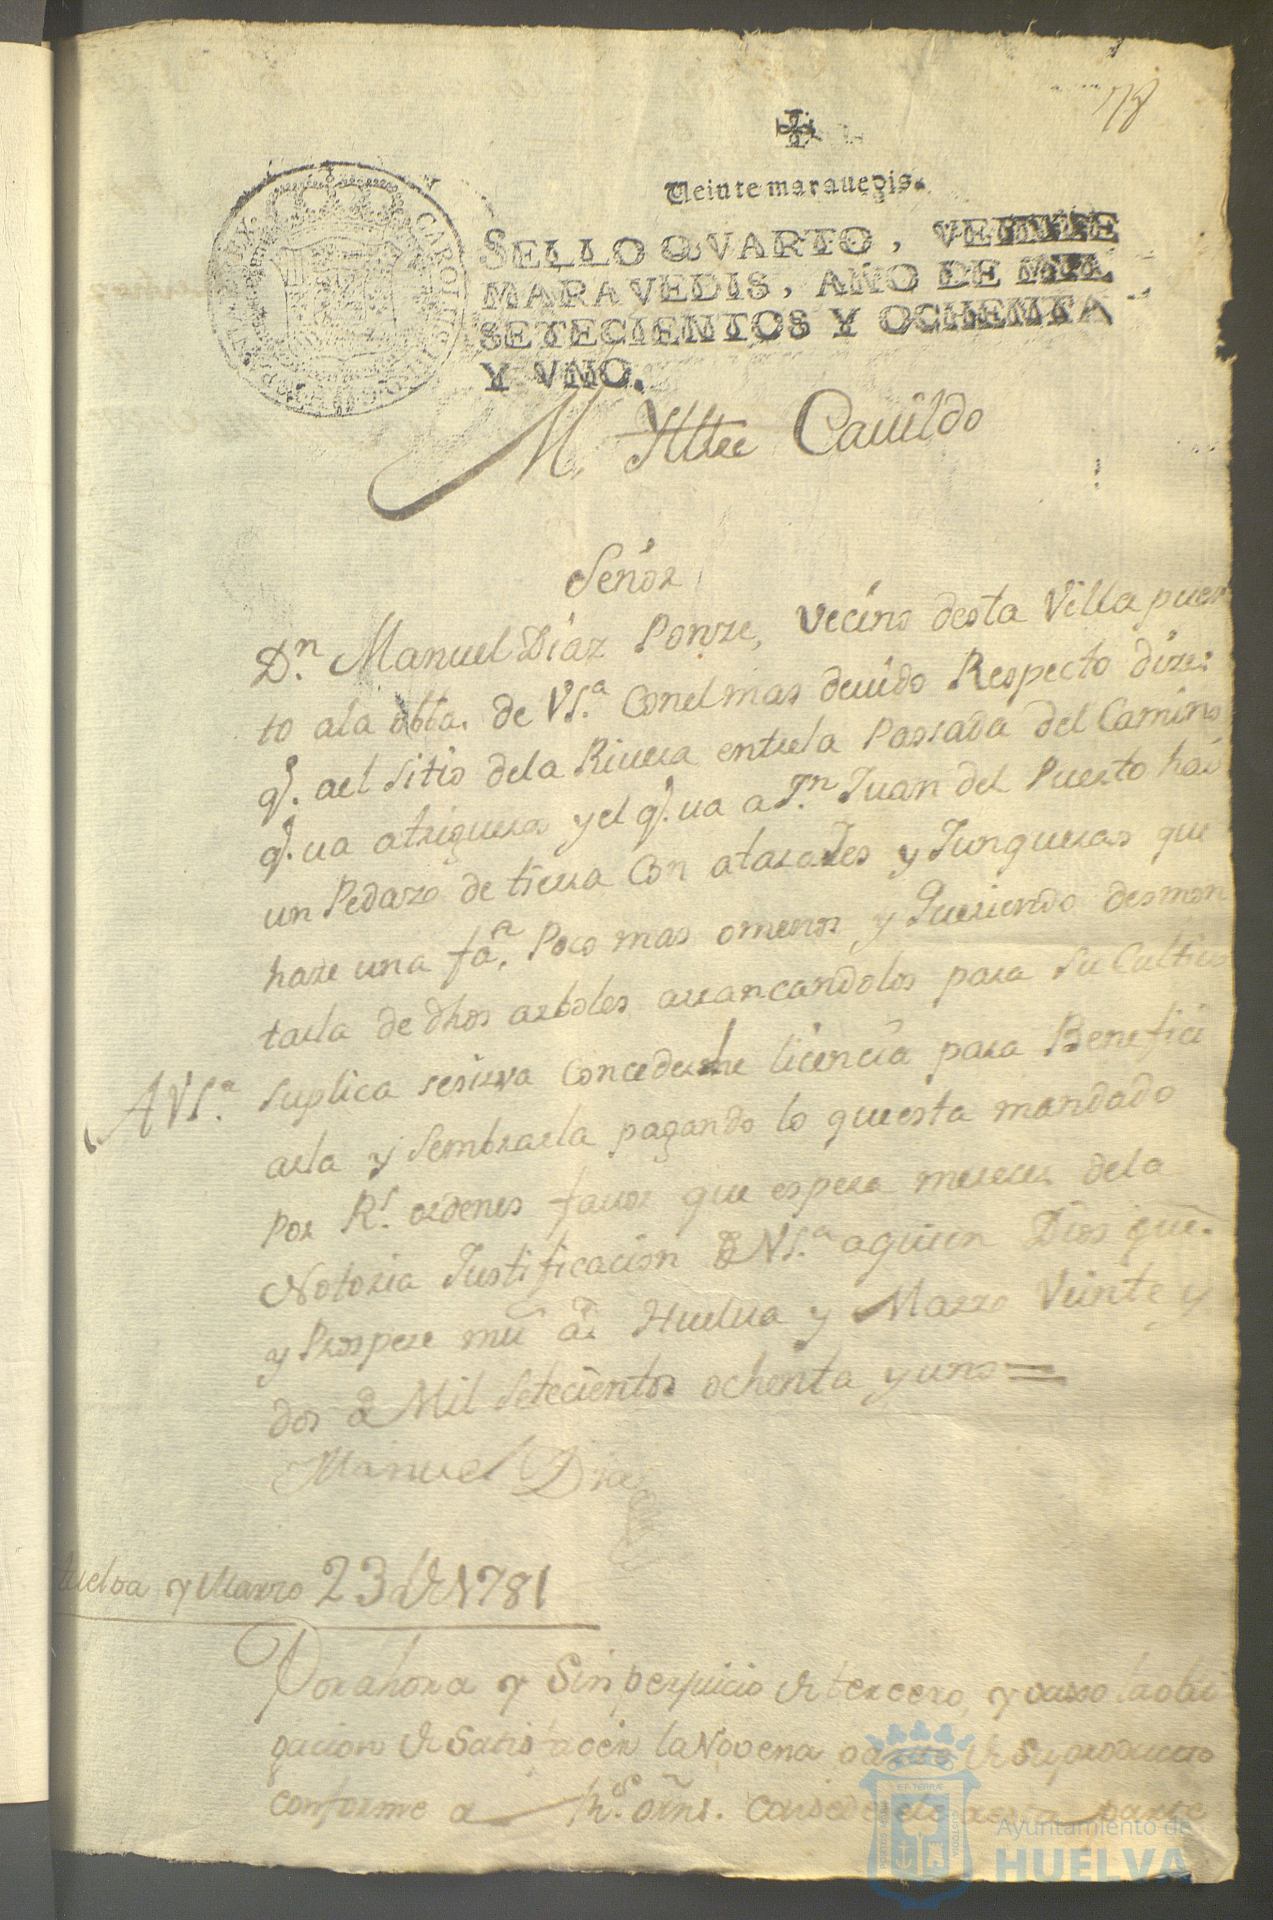 178
Veinte maravedis.
SELLO QVARTO, VEINTE
MARAVEDIS, AÑO DE MIL
SETECIENTOS Y OCHENTA
Y VNO.
M. Ylltre Cauildo
Señor
Dn. Manuel Diaz Ponze, vecino desta Villa pues
to ala obbª. de VSª. Conel mas deuido Respecto dize:
q. ael sitio dela Riuera entrela Passada del Camino
q. ua atrigueros y el q. ua a Sn. Juan del Puerto hai
un Pedazo de tierra Con atarajes y Junqueras que
haze una faª. Poco mas omenos, y Queriendo desmon
tarla de dhos arboles arrancandolos para su Cultiuo
AVSª. Suplica sesirva Concederle licencia para Benefici
arla y sembrarla pagando lo questa mandado
Por Rs. ordenes fauor que espera merecer dela
Notoria Justificacion de VSª. aquien Dios gue.
y Prospere ms. as. Huelua y Marzo Veinte y
dos de Mil Setecientos ochenta y uno =
Manuel Diaz
Huelva y Marzo 23 de 1781
Por ahora y Sin perjuicio de tercero, y vaxo la obli
gacion de Satisfacer la Novena parte de Su producto
conforme a Rs. orns. Concedese a esta parte
Ayuntamiento de
HUELVA